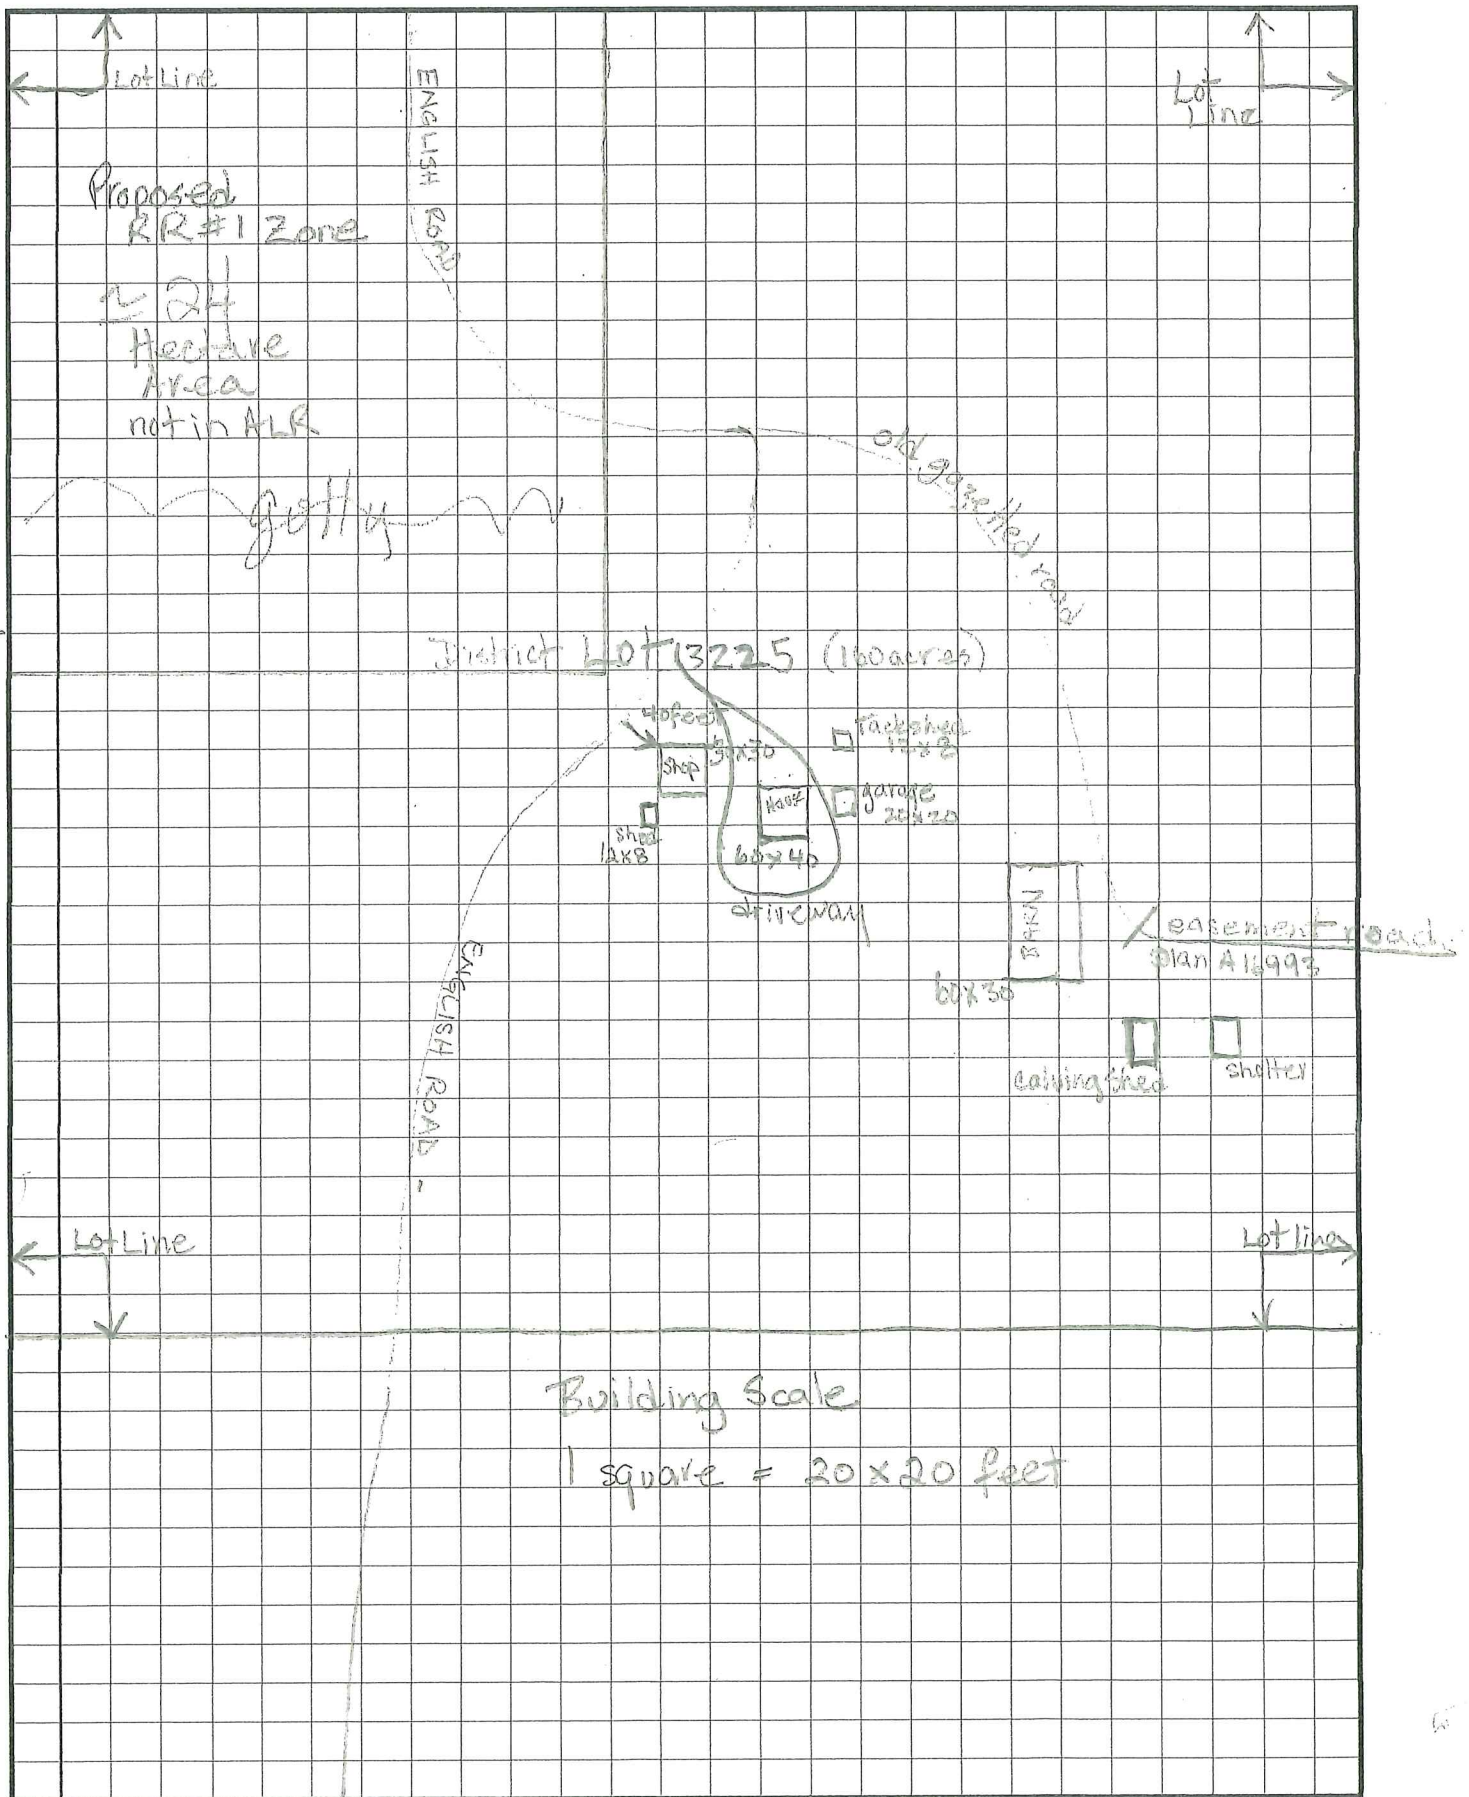 Lot Line
Lot
Line
ENGLISH ROAD
Proposed
RR #1 Zone
≈ 24
Hectare
Area
not in ALR
gully
old gazetted road
District Lot 13225 (160 acres)
40 feet
30x30
Shop
Tackshed
12x8
House
garage
20x20
shed
12x8
60x40
driveway
BARN
60x30
easement road
plan A16993
calving shed
shelter
ENGLISH ROAD
Lot Line
Lot line
Building Scale
1 square = 20 x 20 feet